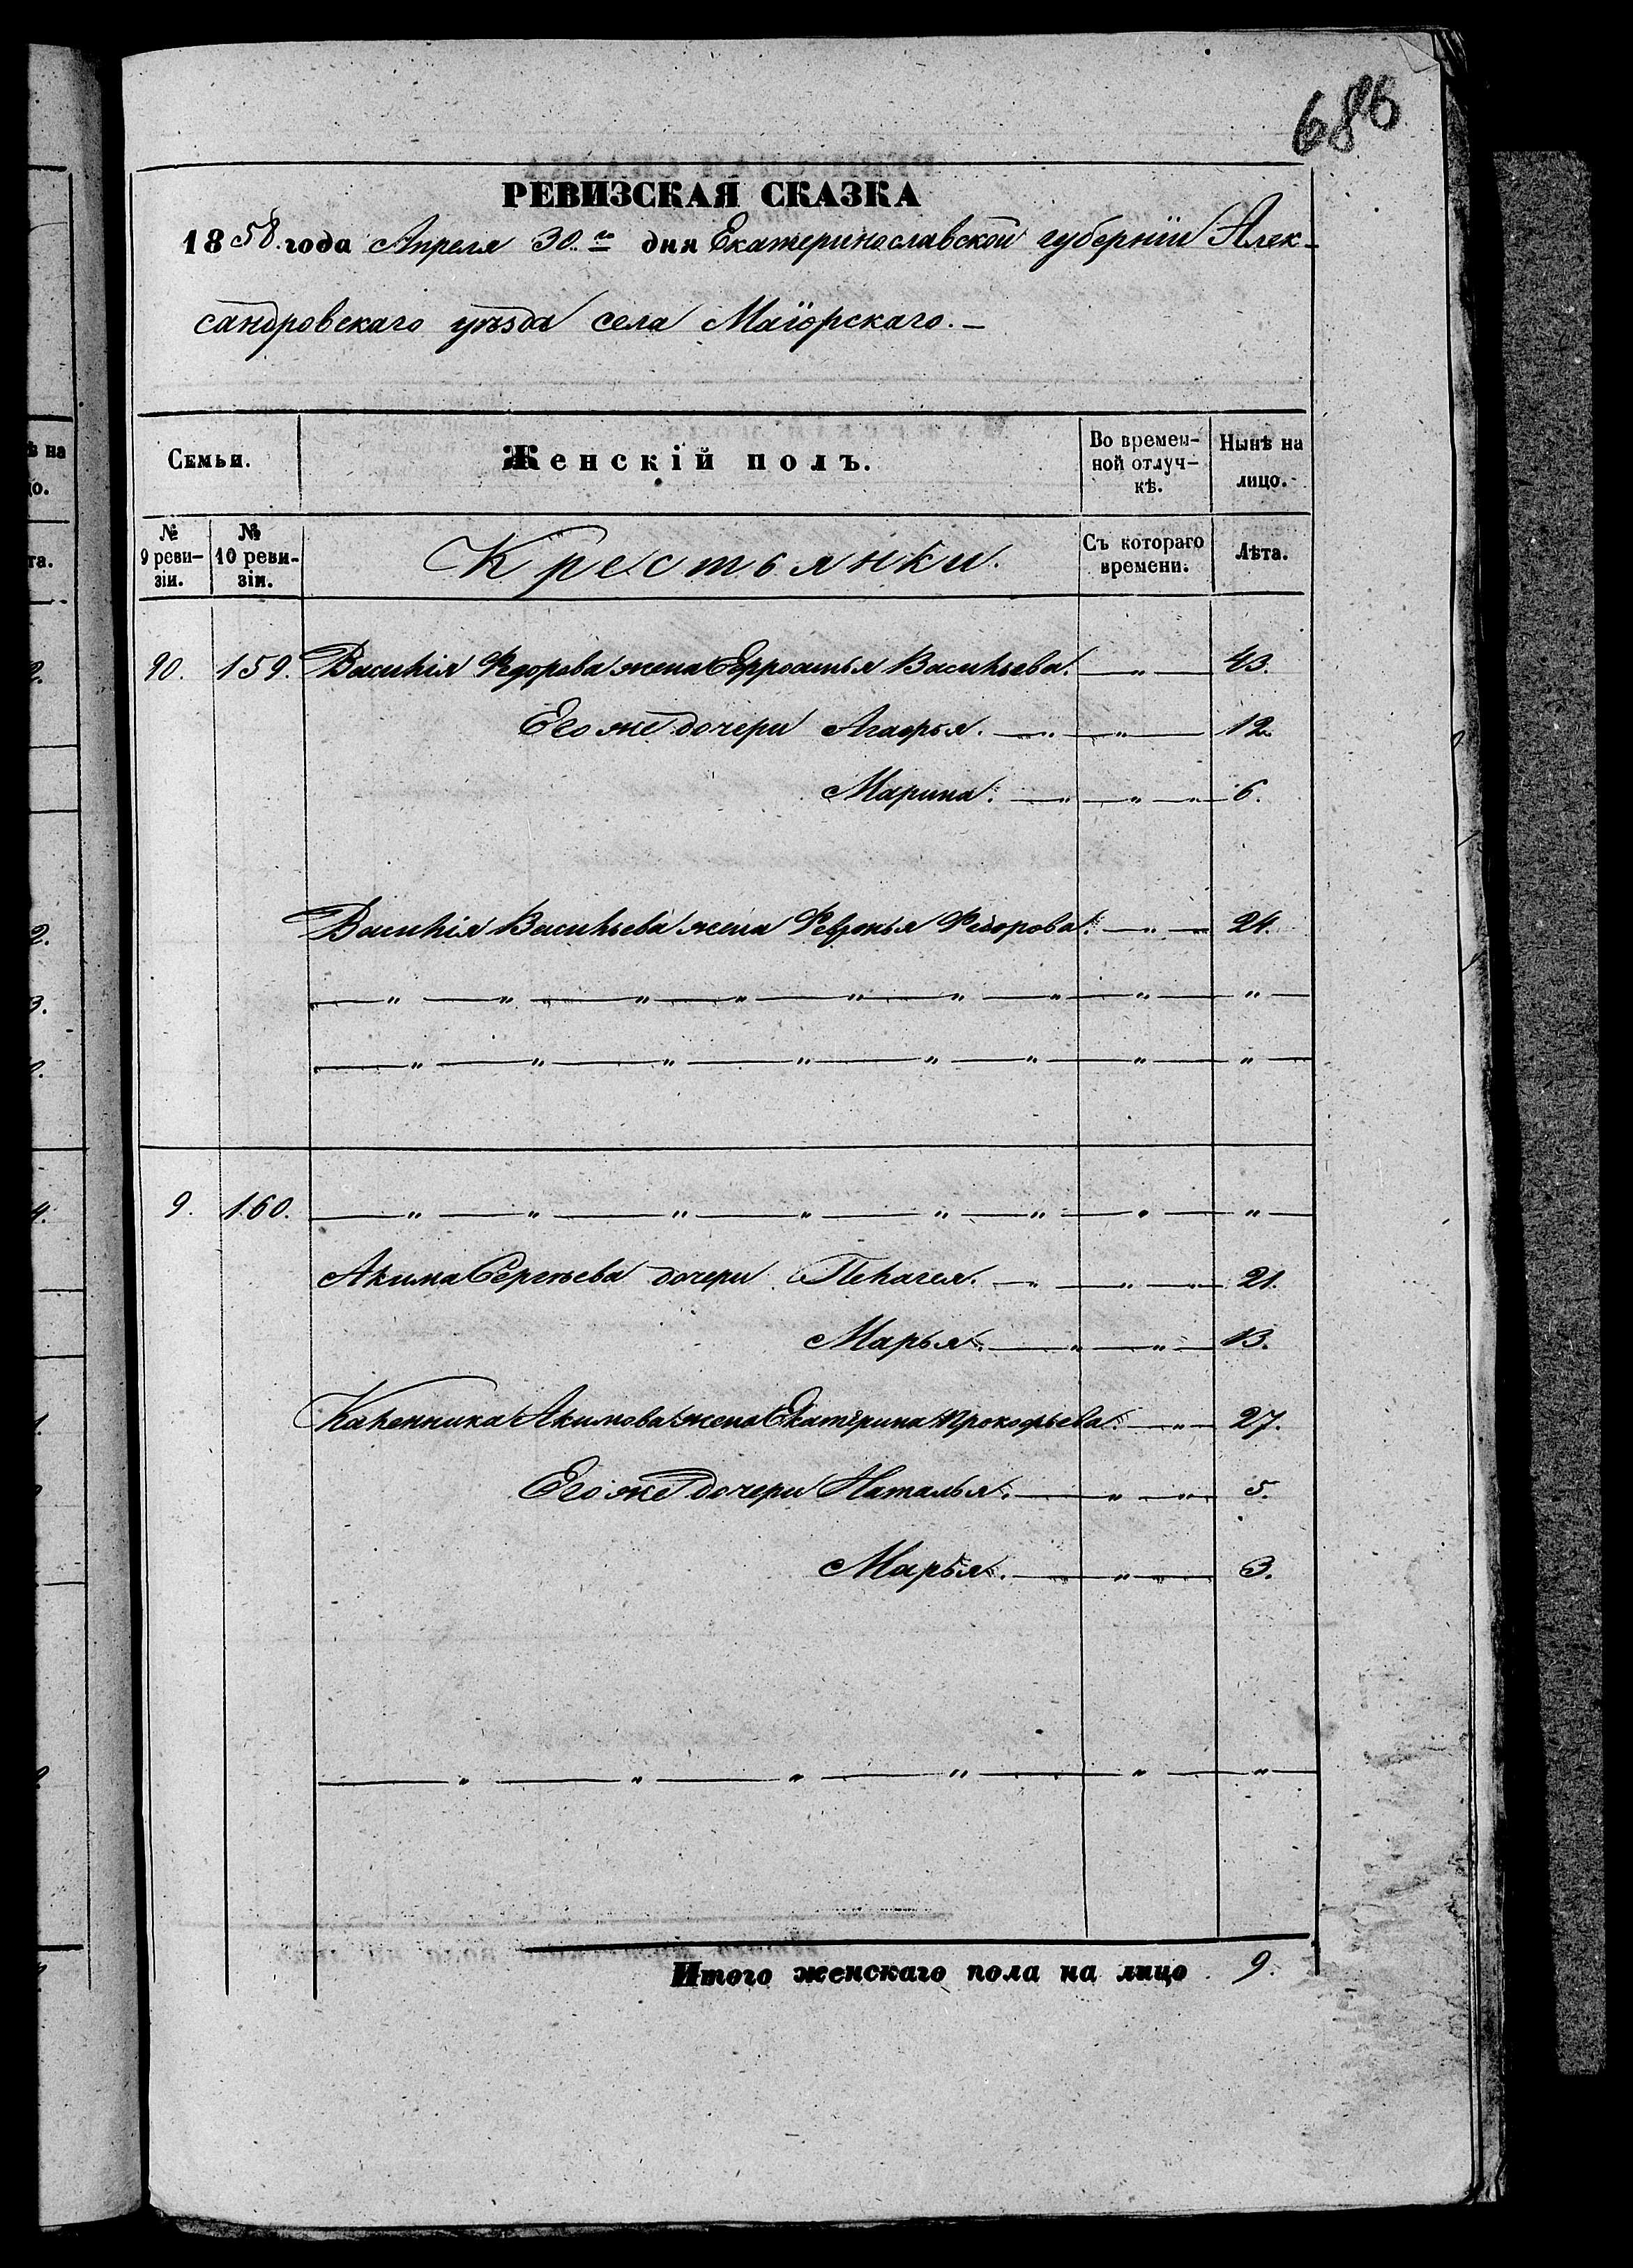 686
РЕВИЗСКАЯ СКАЗКА
1858. года Апреля 30.го дня Екатеринославской губернiи Алек-
сандровскаго уѣзда села Маiорскаго.
Семьи.
Женскій полъ.
Во времен-
ной отлуч-
кѣ.
Нынѣ на
лицо.
№
9 реви-
зіи.
№
10 реви-
зіи.
Крестьянки.
Съ котораго
времени.
Лѣта.
90. 159. Василія Федорова жена Ефросинья Васильева. — " — 43.
Его же дочери Агафья. — " — " — 12.
Марина. — " — " — " — 6.
Василія Васильева жена Февронья Федорова. — " — 24.
9. 160. — " — " — " — " — " — " — " — "
Акима Сергѣева дочери Пелагея. — " — " — " — 21.
Марья. — " — " — 13.
Калинника Акимова жена Екатерина Прокофьева. — " — 27.
Его же дочери Наталья. — " — " — 5.
Марья. — " — " — " — 3.
Итого женскаго пола на лицо 9.